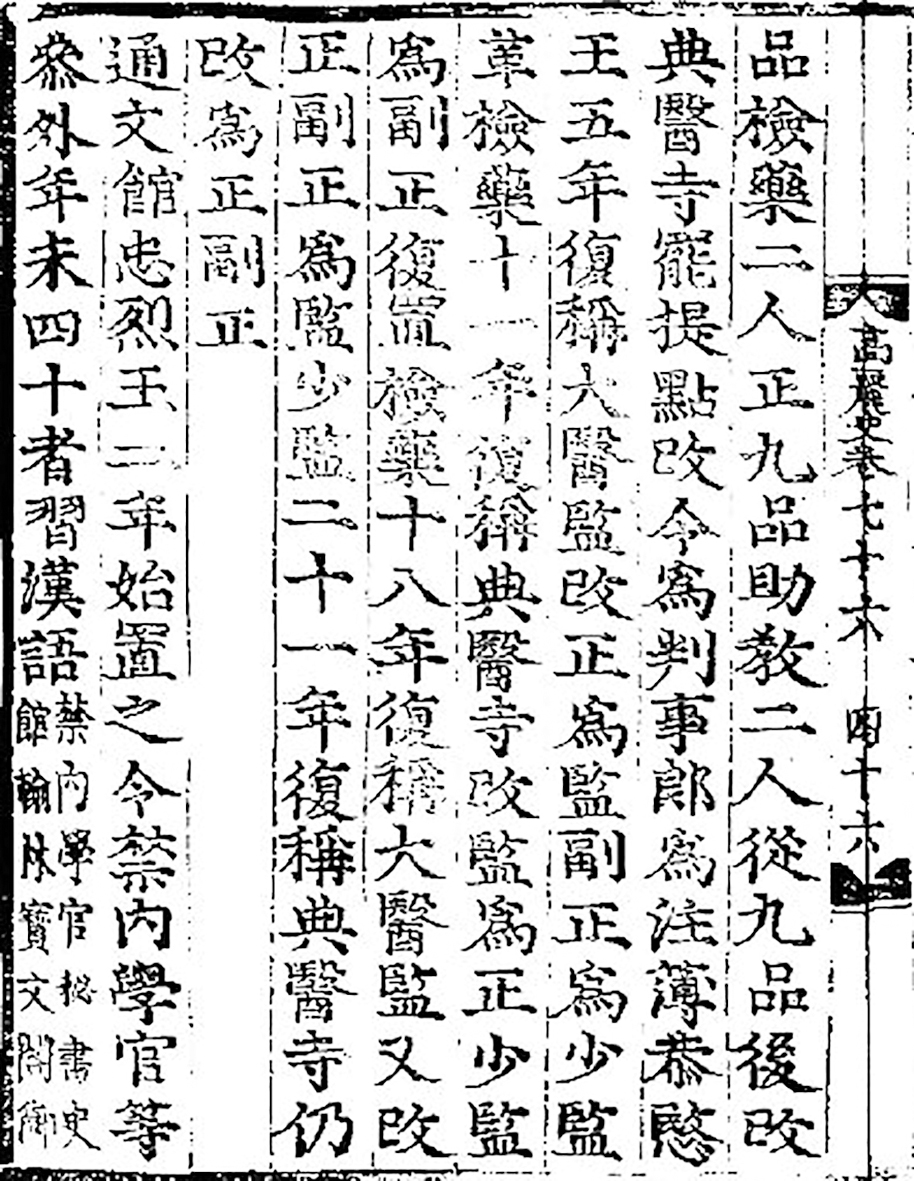 高麗史卷七十六 四十六
品檢藥二人正九品助敎二人從九品後改
典醫寺罷提點改令爲判事郎爲注薄恭愍
王五年復稱大醫監改正爲監副正爲少監
革檢藥十一年復稱典醫寺改監爲正少監
爲副正復置檢藥十八年復稱大醫監又改
正副正爲監少監二十一年復稱典醫寺仍
改爲正副正
通文館忠烈王二年始置之令禁內學官等
叅外年未四十者習漢語禁內學官秘書史館翰林寶文閣御